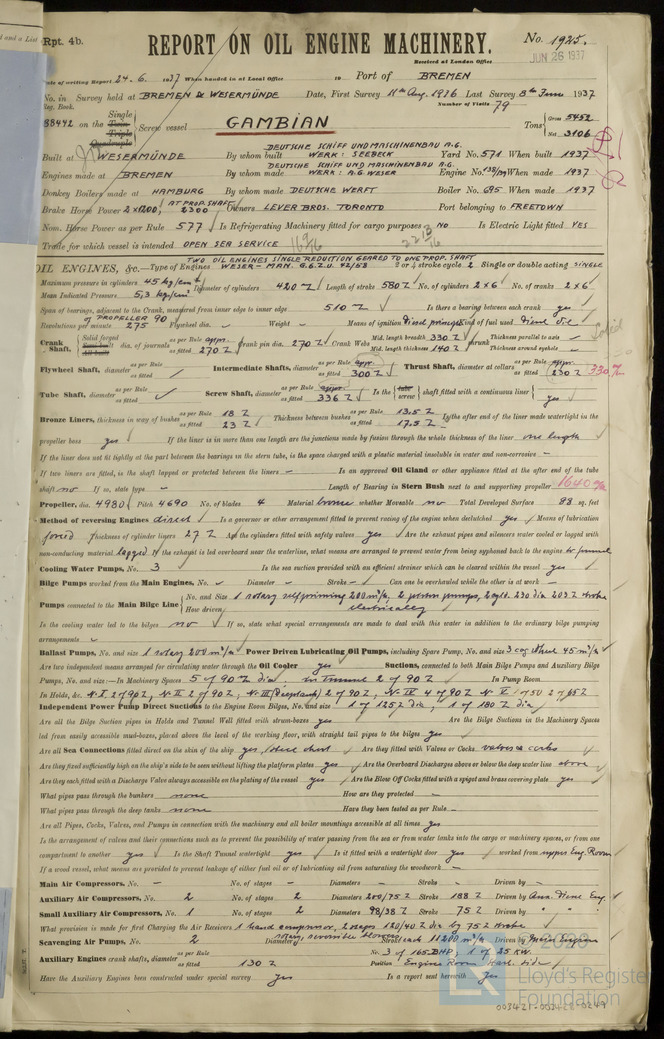 d and a List
Rpt. 4b. REPORT ON OIL ENGINE MACHINERY. No. 1925.
Received at London Office
JUN 26 1937
Date of writing Report 24.6. 1937 When handed in at Local Office 19 Port of BREMEN
No. in Survey held at BREMEN & WESERMÜNDE Date, First Survey 11th Aug. 1936 Last Survey 8th June 1937
Reg. Book. Number of Visits 79
88442 on the Single Twin Triple Quadruple Screw vessel GAMBIAN Tons Gross 5452 Net 3106
DEUTSCHE SCHIFF UND MASCHINENBAU A.G.
Built at WESERMÜNDE By whom built WERK: SEEBECK Yard No. 571 When built 1937
DEUTSCHE SCHIFF UND MASCHINENBAU A.G.
Engines made at BREMEN By whom made WERK: A.G. WESER Engine No. 138/39 When made 1937
Donkey Boilers made at HAMBURG By whom made DEUTSCHE WERFT Boiler No. 695 When made 1937
Brake Horse Power 2x1200, AT PROP. SHAFT 2300 Owners LEVER BROS. TORONTO Port belonging to FREETOWN
Nom. Horse Power as per Rule 577 Is Refrigerating Machinery fitted for cargo purposes NO Is Electric Light fitted YES
Trade for which vessel is intended OPEN SEA SERVICE
TWO OIL ENGINES SINGLE REDUCTION GEARED TO ONE PROP. SHAFT
OIL ENGINES, &c. Type of Engines WESER-MAN. G.6.Z.U. 42/58 2 or 4 stroke cycle 2 Single or double acting SINGLE
Maximum pressure in cylinders 45 kg/cm² Diameter of cylinders 420 Length of stroke 580 No. of cylinders 2x6 No. of cranks 2x6
Mean Indicated Pressure 5,3 kg/cm²
Span of bearings, adjacent to the Crank, measured from inner edge to inner edge 510 Is there a bearing between each crank yes
OF PROPELLER 90
Revolutions per minute 275 Flywheel dia. - Weight - Means of ignition Diesel principle Kind of fuel used diesel oil
Crank Shaft, Solid forged dia. of journals as per Rule appr. as fitted 270 Crank pin dia. 270 Crank Webs Mid. length breadth 330 Mid. length thickness 140 shrunk Thickness parallel to axis - Thickness around eyehole -
Flywheel Shaft, diameter as per Rule as fitted Intermediate Shafts, diameter as per Rule appr. as fitted 300 Thrust Shaft, diameter at collars as per Rule appr. as fitted 230 330
Tube Shaft, diameter as per Rule as fitted Screw Shaft, diameter as per Rule appr. as fitted 336 Is the tube screw shaft fitted with a continuous liner yes
Bronze Liners, thickness in way of bushes as per Rule 18 as fitted 23 Thickness between bushes as per Rule 13.5 as fitted 17.5 Is the after end of the liner made watertight in the
propeller boss yes If the liner is in more than one length are the junctions made by fusion through the whole thickness of the liner one length
If the liner does not fit tightly at the part between the bearings in the stern tube, is the space charged with a plastic material insoluble in water and non-corrosive -
If two liners are fitted, is the shaft lapped or protected between the liners - Is an approved Oil Gland or other appliance fitted at the after end of the tube
shaft no If so, state type - Length of Bearing in Stern Bush next to and supporting propeller 1640
Propeller, dia. 4980 Pitch 4690 No. of blades 4 Material bronze whether Moveable no Total Developed Surface 83 sq. feet
Method of reversing Engines direct Is a governor or other arrangement fitted to prevent racing of the engine when declutched yes Means of lubrication
forced Thickness of cylinder liners 27 Are the cylinders fitted with safety valves yes Are the exhaust pipes and silencers water cooled or lagged with
non-conducting material lagged If the exhaust is led overboard near the waterline, what means are arranged to prevent water from being syphoned back to the engine to funnel
Cooling Water Pumps, No. 3 Is the sea suction provided with an efficient strainer which can be cleared within the vessel yes
Bilge Pumps worked from the Main Engines, No. - Diameter - Stroke - Can one be overhauled while the other is at work -
Pumps connected to the Main Bilge Line No. and Size 1 rotary selfpriming 200 m³/h, 2 piston pumps, 2 cyl. 230 dia 203 stroke
How driven electrically
Is the cooling water led to the bilges no If so, state what special arrangements are made to deal with this water in addition to the ordinary bilge pumping
arrangements -
Ballast Pumps, No. and size 1 rotary 200 m³/h Power Driven Lubricating Oil Pumps, including Spare Pump, No. and size 3 cog wheel 45 m³/h
Are two independent means arranged for circulating water through the Oil Cooler yes Suctions, connected to both Main Bilge Pumps and Auxiliary Bilge
Pumps, No. and size:—In Machinery Spaces 5 of 90 dia, in tunnel 2 of 90 In Pump Room
In Holds, &c. N-I 2 of 90, N-II 2 of 90, N-III (Deeptank) 2 of 90, N-IV 4 of 90 N-V
Independent Power Pump Direct Suctions to the Engine Room Bilges, No. and size 1 of 125 dia, 1 of 180 dia
Are all the Bilge Suction pipes in Holds and Tunnel Well fitted with strum-boxes yes Are the Bilge Suctions in the Machinery Spaces
led from easily accessible mud-boxes, placed above the level of the working floor, with straight tail pipes to the bilges yes
Are all Sea Connections fitted direct on the skin of the ship yes Are they fitted with Valves or Cocks valves & cocks
Are they fixed sufficiently high on the ship's side to be seen without lifting the platform plates yes Are the Overboard Discharges above or below the deep water line above
Are they each fitted with a Discharge Valve always accessible on the plating of the vessel yes Are the Blow Off Cocks fitted with a spigot and brass covering plate yes
What pipes pass through the bunkers none How are they protected -
What pipes pass through the deep tanks none Have they been tested as per Rule -
Are all Pipes, Cocks, Valves, and Pumps in connection with the machinery and all boiler mountings accessible at all times yes
Is the arrangement of valves and their connections such as to prevent the possibility of water passing from the sea or from water tanks into the cargo or machinery spaces, or from one
compartment to another yes Is the Shaft Tunnel watertight yes Is it fitted with a watertight door yes worked from upper Eng. Room
If a wood vessel, what means are provided to prevent leakage of either fuel oil or of lubricating oil from saturating the woodwork -
Main Air Compressors, No. - No. of stages - Diameters - Stroke - Driven by -
Auxiliary Air Compressors, No. 2 No. of stages 2 Diameters 200/75 Stroke 188 Driven by Aux. Diesel Eng.
Small Auxiliary Air Compressors, No. 1 No. of stages 2 Diameters 98/38 Stroke 75 Driven by " "
What provision is made for first Charging the Air Receivers 1 hand compressor, 2 stages 120/40 dia by 75 stroke
Scavenging Air Pumps, No. 2 Diameter rotary, reversible blowers Stroke each 11200 m³/h Driven by Main Engines
Auxiliary Engines crank shafts, diameter as per Rule as fitted 130 No. 3 of 165 BHP, 1 of 25 KW.
Position Engine Room
Have the Auxiliary Engines been constructed under special survey yes Is a report sent herewith yes
© 2020
Lloyd's Register
Foundation
003421-003428-0249